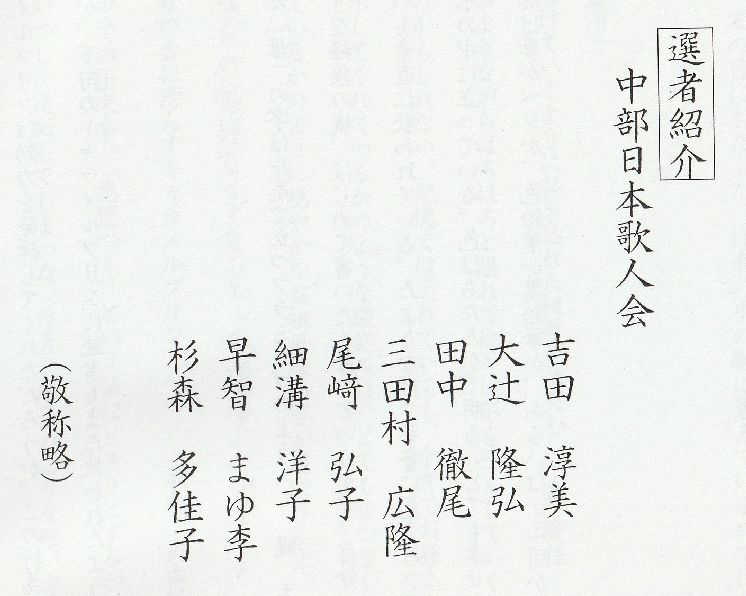 選者紹介
中部日本歌人会
吉田 淳美
大辻 隆弘
田中 徹尾
三田村 広隆
尾﨑 弘子
細溝 洋子
早智 まゆ李
杉森 多佳子
(敬称略)